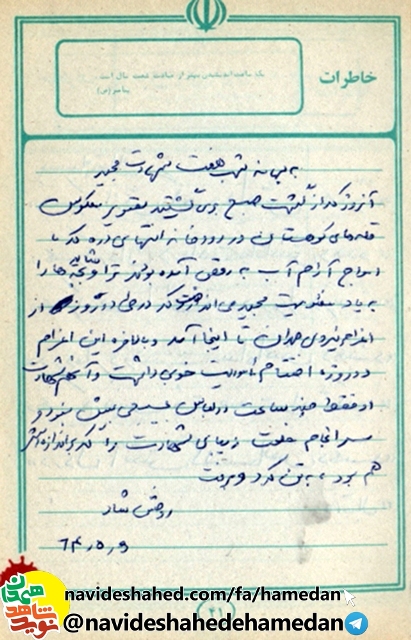 خاطرات
یک ساعت اندیشیدن بهتر از عبادت شصت سال است
پیامبر (ص)
به بهانه شب هفت شهادت مجید
آنروز که از گذشت صبح بوی تصویر معکوس
قله‌های کوهستان در رودخانه انتهای دره که با
امواج آرام آب به رقص آمده بودند ترا و بچه‌ها را
به یاد مجید می‌انداخت که در طی دو روز از
اعزام نیروی همدان تا اینجا آمد و بالاخره این اعزام
دو روزه اختتام مأموریت خوبی داشت و آنهم شهادت
او فقط چند ساعت در لباس بسیجی بیش نبود و
سرانجام خلعت زیبای شهادت را که براندازه‌اش
هم بود، به تن کرد و رفت
روحش شاد
۶۴،۵،۹
۲۱
navideshahed.com/fa/hamedan
@navideshahedehamedan
نوید شاهد همدان